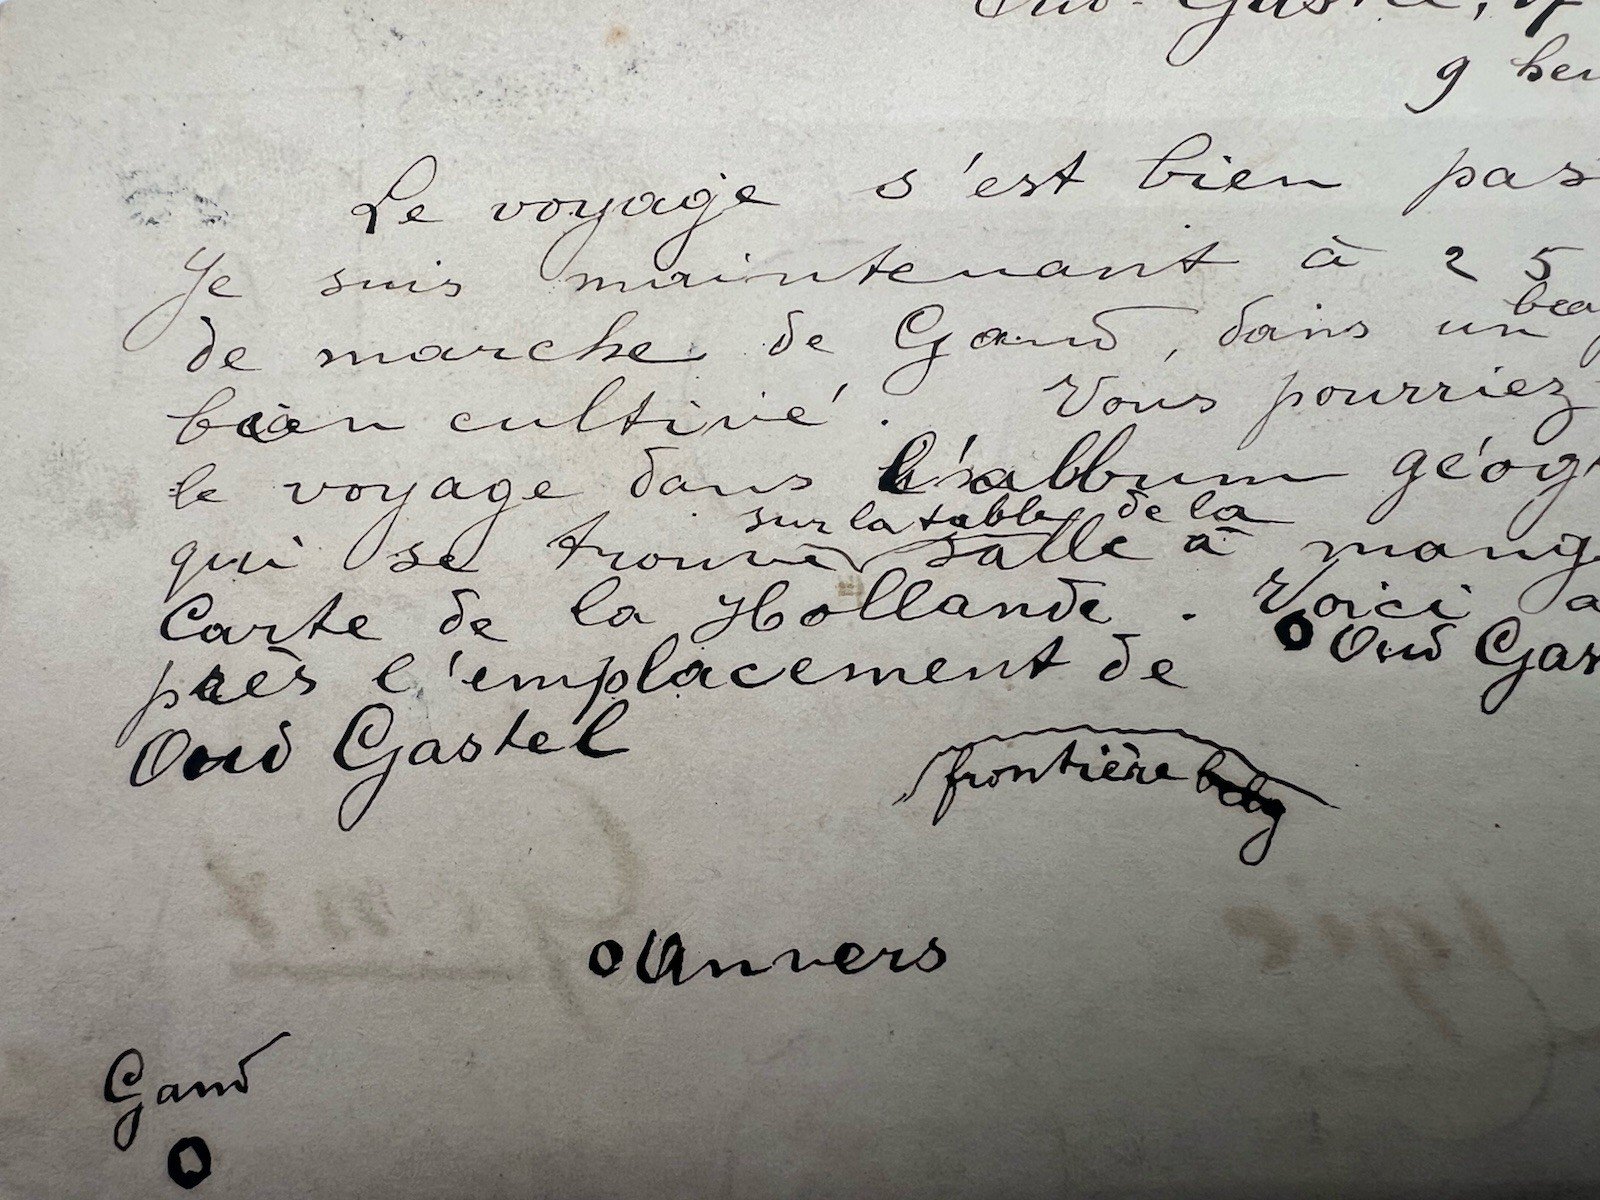 Oud-Gastel,
9 heu
Le voyage s'est bien pas
Je suis maintenant à 25
de marche de Gand, dans un beau
bien cultivé. Vous pourriez
le voyage dans l'album géog
qui se trouve sur la table de la salle à mang
Carte de la Hollande. Voici a
près l'emplacement de
Oud Gastel
O Oud Gas
frontière belg
O Anvers
Gand
O